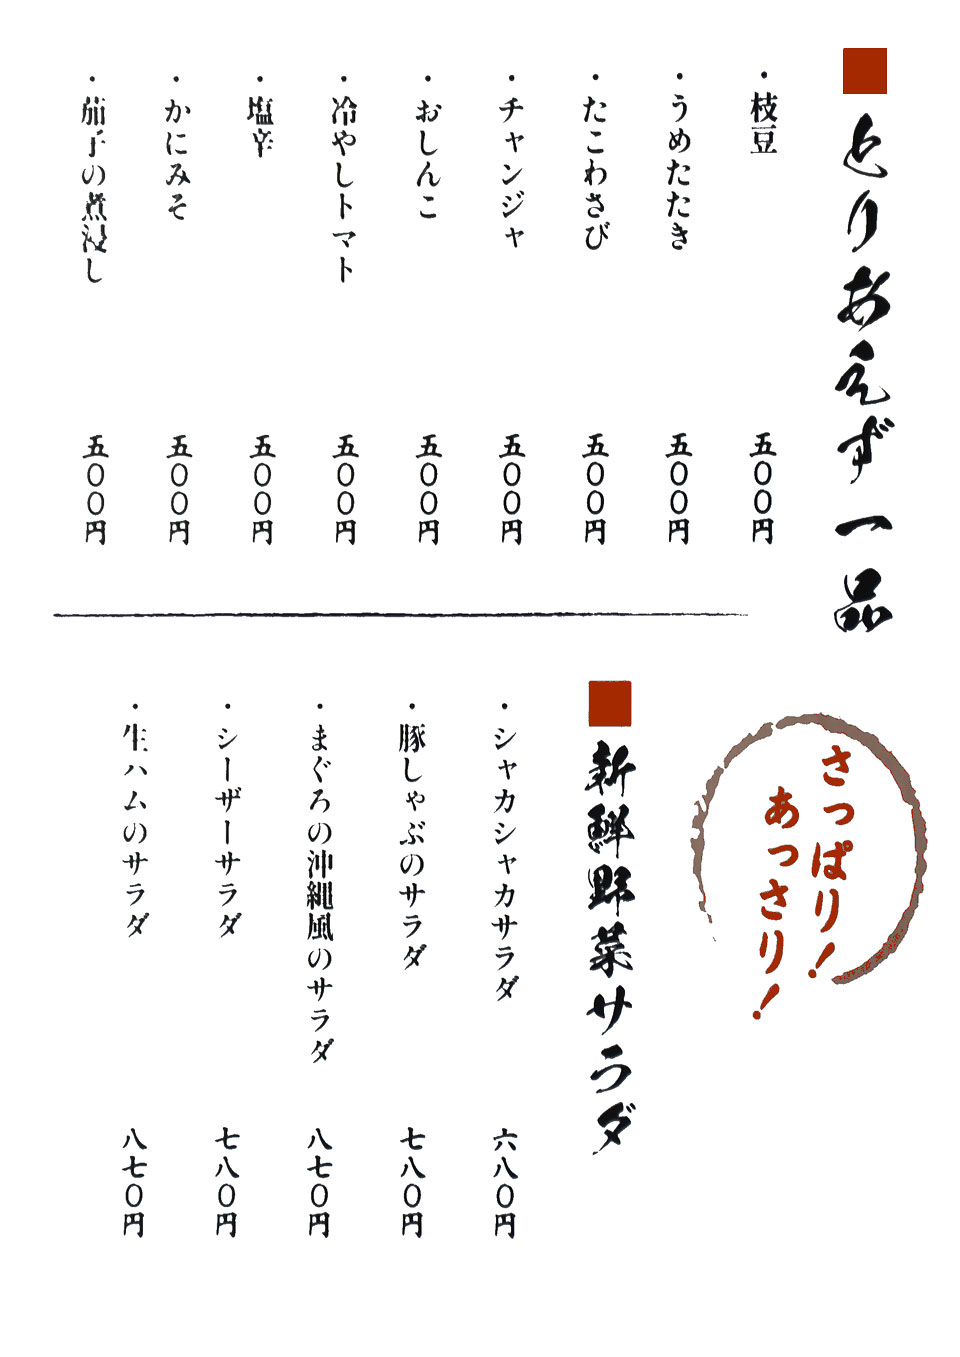 ■とりあえず一品
・枝豆 五〇〇円
・うめたたき 五〇〇円
・たこわさび 五〇〇円
・チャンジャ 五〇〇円
・おしんこ 五〇〇円
・冷やしトマト 五〇〇円
・塩辛 五〇〇円
・かにみそ 五〇〇円
・茄子の煮浸し 五〇〇円
さっぱり！
あっさり！
■新鮮野菜サラダ
・シャカシャカサラダ 六八〇円
・豚しゃぶのサラダ 七八〇円
・まぐろの沖縄風のサラダ 八七〇円
・シーザーサラダ 七八〇円
・生ハムのサラダ 八七〇円